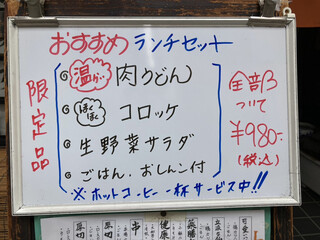 おすすめ ランチセット
限定品
温かい 肉うどん
ほくほく コロッケ
生野菜サラダ
ごはん、おしんこ付
全部
ついて
¥980-
(税込)
※ホットコーヒー一杯サービス中!!